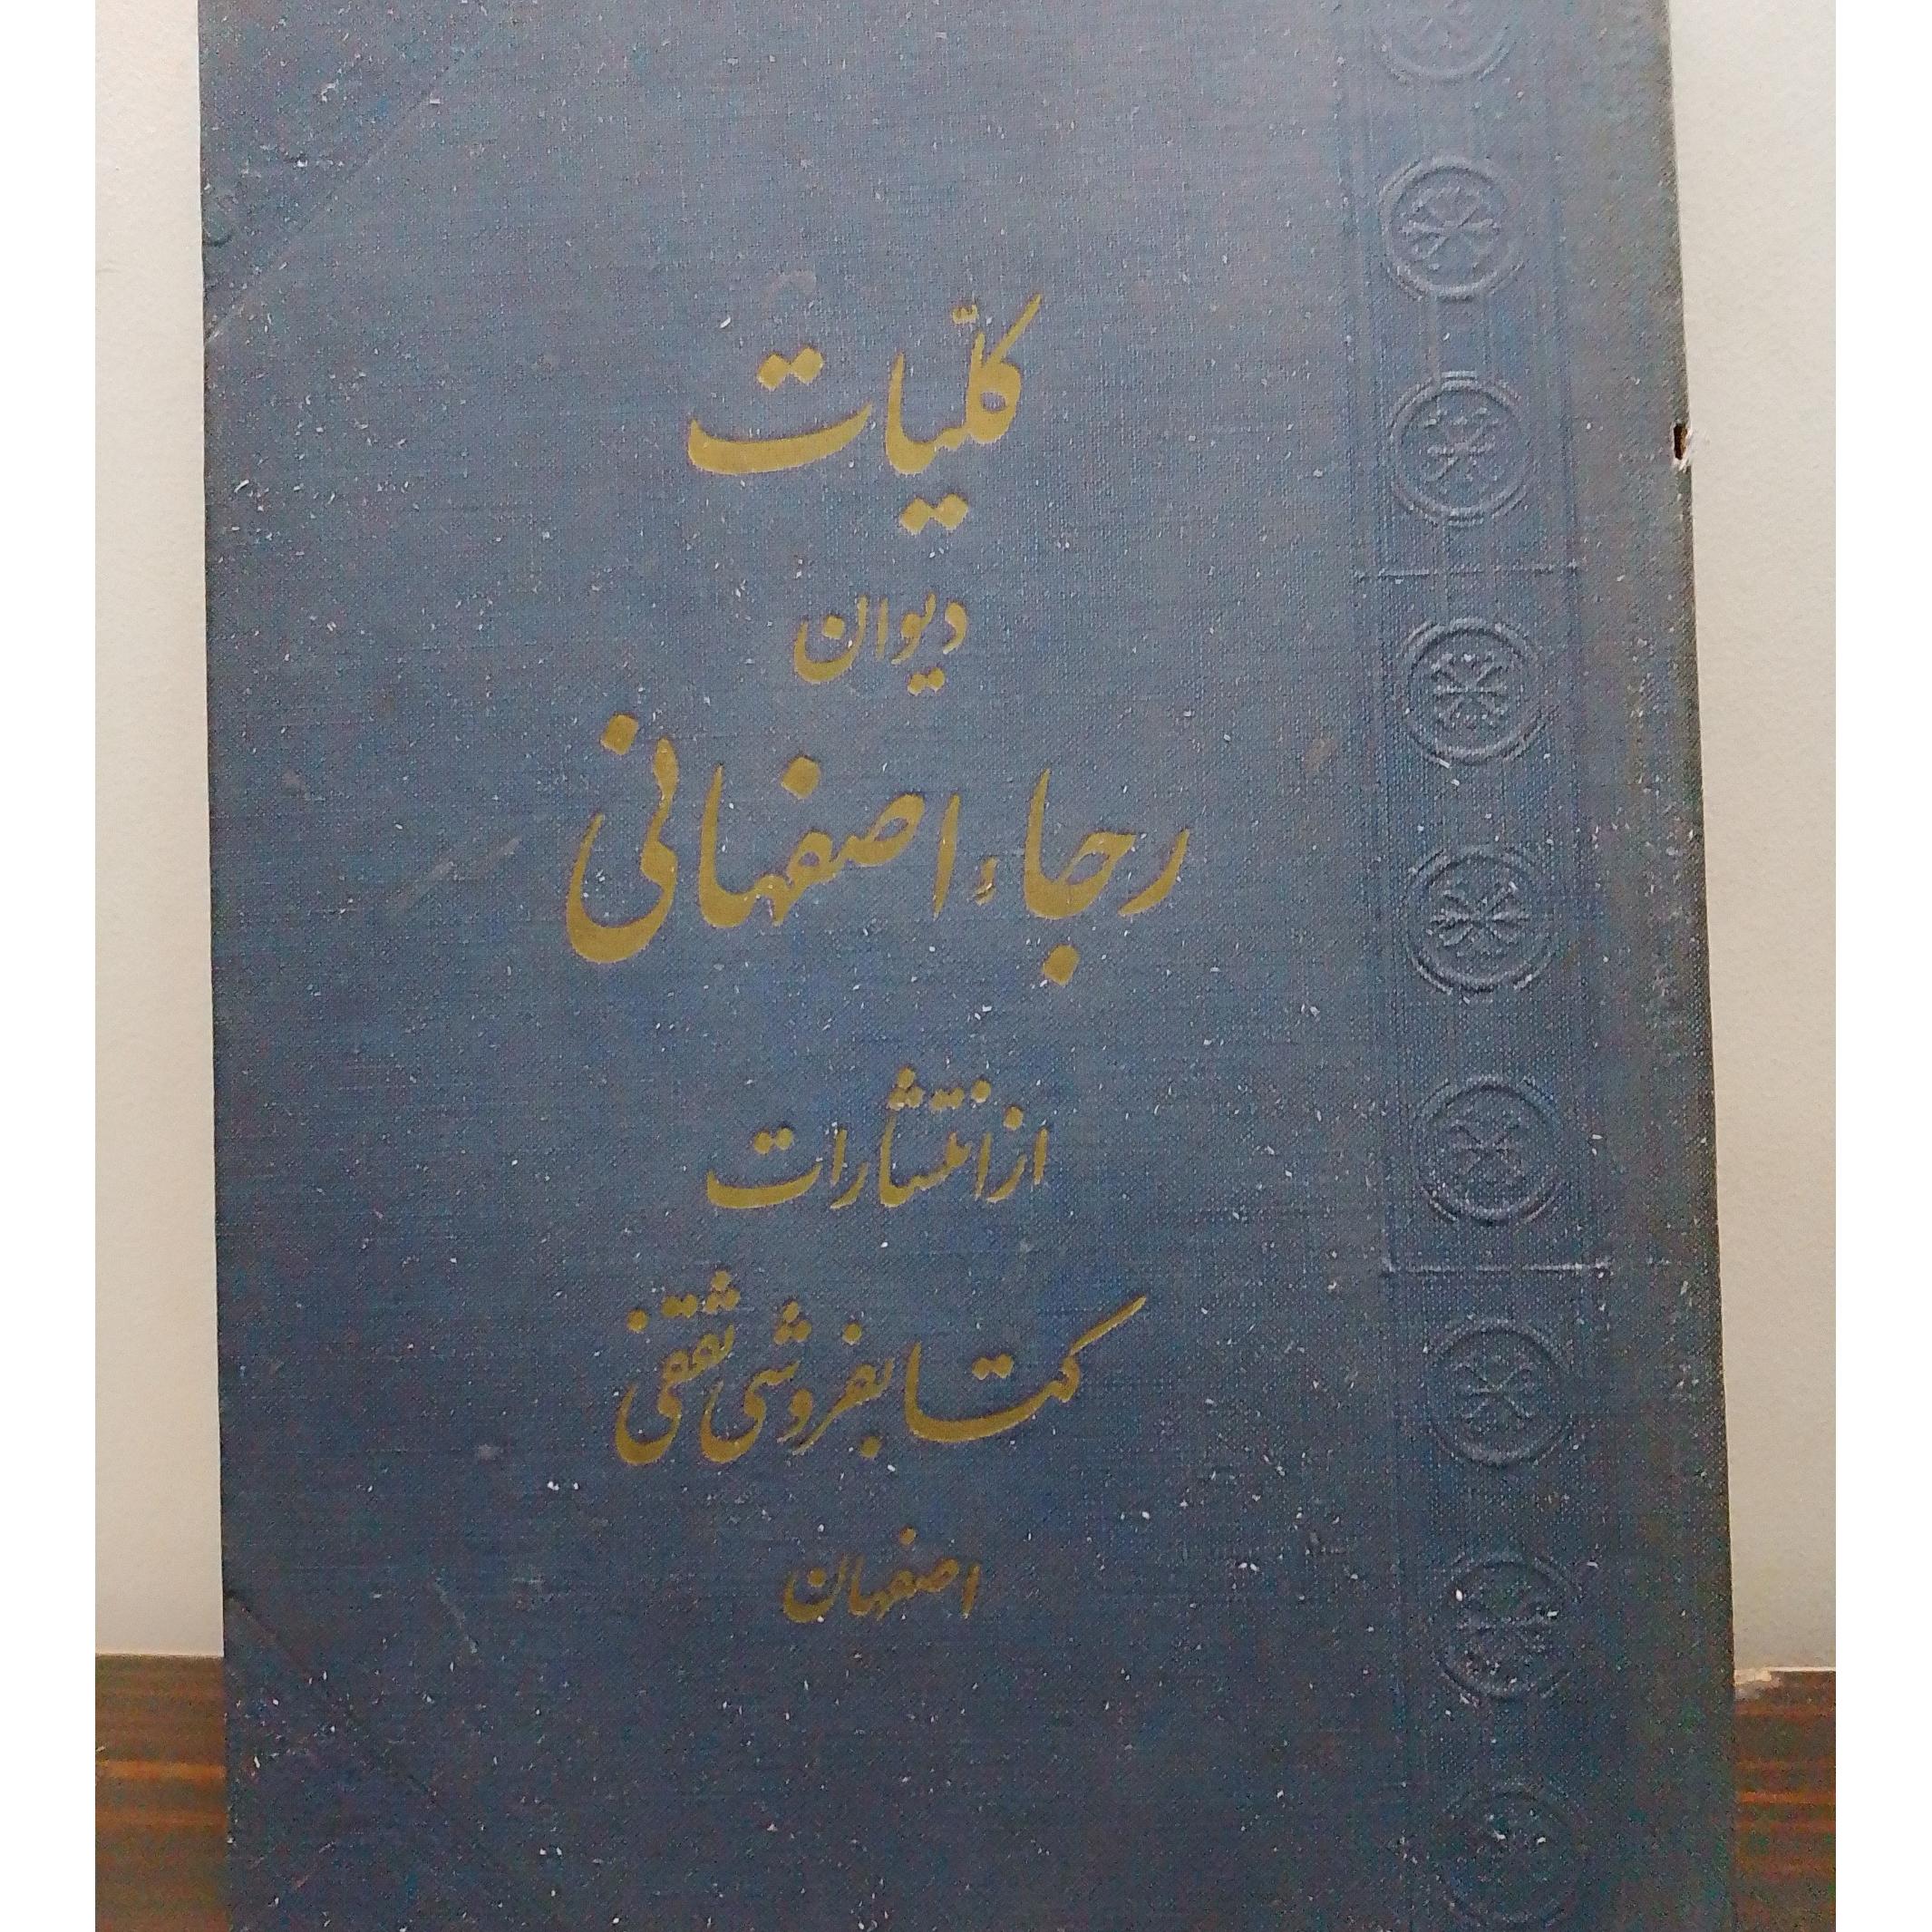 کلّیات
دیوان
رجاء اصفهانی
از انتشارات
کتابفروشی ثقفی
اصفهان